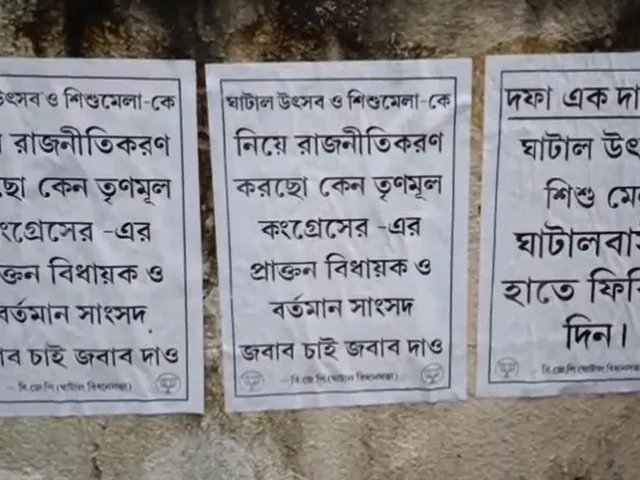 উৎসব ও শিশুমেলা-কে
রাজনীতিকরণ
কেন তৃণমূল
কংগ্রেসের -এর
প্রাক্তন বিধায়ক ও
বর্তমান সাংসদ
জবাব চাই জবাব দাও
- বি.জে.পি (ঘাটাল বিধানসভা)
ঘাটাল উৎসব ও শিশুমেলা-কে
নিয়ে রাজনীতিকরণ
করছো কেন তৃণমূল
কংগ্রেসের -এর
প্রাক্তন বিধায়ক ও
বর্তমান সাংসদ
জবাব চাই জবাব দাও
- বি.জে.পি (ঘাটাল বিধানসভা)
দফা এক
ঘাটাল
শিশু
হাতে
দিন।
- বি.জে.পি (ঘাটাল বিধানসভা)